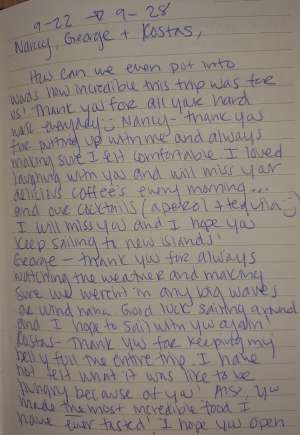 9-22 → 9-28
Nancy, George + Kostas,
How can we even put into
words how incredible this trip was for
us! Thank you for all your hard
work everyday :) Nancy - thank you
for putting up with me and always
making sure I felt comfortable. I loved
laughing with you and will miss your
delicious coffee's every morning...
and our cocktails (aperol + tequila :)
I will miss you and I hope you
keep sailing to new islands!
George - thank you for always
watching the weather and making
sure we weren't in any big waves
or wind haha. Good luck sailing around
and I hope to sail with you again!
Kostas - Thank you for keeping my
belly full the entire trip. I have
not felt what it was like to be
hungry because of you! Also, you
made the most incredible food I
have ever tasted! I hope you open